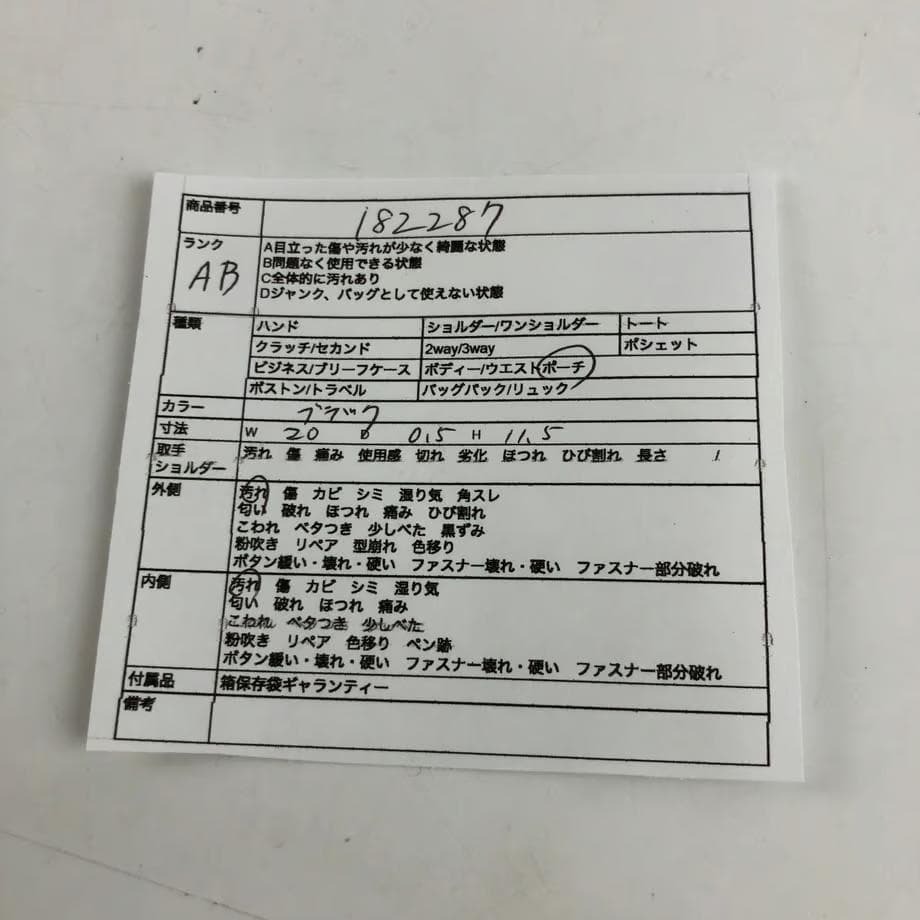 商品番号 182287
ランク AB
A目立った傷や汚れが少なく綺麗な状態
B問題なく使用できる状態
C全体的に汚れあり
Dジャンク、バッグとして使えない状態
種類 ハンド ショルダー/ワンショルダー トート
クラッチ/セカンド 2way/3way ポシェット
ビジネス/ブリーフケース ボディー/ウエストポーチ
ボストン/トラベル バッグパック/リュック
カラー ブラック
寸法 W 20 D 0.5 H 11.5
取手 汚れ 傷 痛み 使用感 切れ 劣化 ほつれ ひび割れ 長さ /
ショルダー
外側 汚れ 傷 カビ シミ 湿り気 角スレ
匂い 破れ ほつれ 痛み ひび割れ
こわれ ベタつき 少しべた 黒ずみ
粉吹き リペア 型崩れ 色移り
ボタン緩い・壊れ・硬い ファスナー壊れ・硬い ファスナー部分破れ
内側 汚れ 傷 カビ シミ 湿り気
匂い 破れ ほつれ 痛み
こわれ ベタつき 少しべた
粉吹き リペア 色移り ペン跡
ボタン緩い・壊れ・硬い ファスナー壊れ・硬い ファスナー部分破れ
付属品 箱保存袋ギャランティー
備考